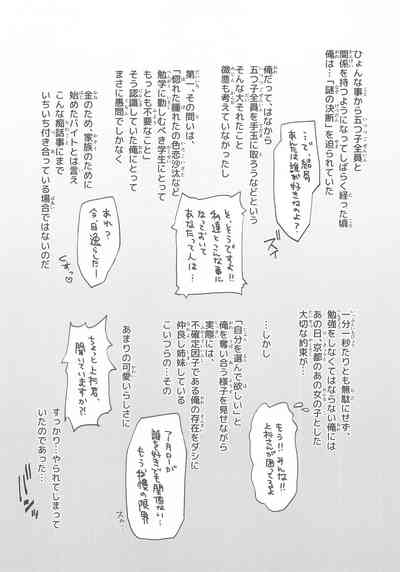 ひょんな事から五つ子全員と
関係を持つようになってしばらく経った頃
俺は…「謎の決断」を迫られていた
…で、結局
あんたは誰が好きなのよ？
俺だって、はなから
五つ子全員を手玉に取ろうなどという
そんな大それたこと
微塵も考えていなかったし
そ、そうですよ!!
私達とこんな事に
なっておいて
あなたって人は…
第一、その問いは
「惚れた腫れたの色恋沙汰など
勉学に勤しむべき学生にとって
もっとも不要なこと」
そう認識していた俺にとって
まさに愚問でしかなく
あれ？
今、目逸らした…
金のため、家族のために
始めたバイトとは言え
こんな痴話事にまで
いちいち付き合っている場合ではないのだ
一分一秒たりとも無駄にせず、
勉強をしなくてはならない俺には
あの日、京都のあの女の子とした
大切な約束が…
もう!!みんな!!
上杉さんが困ってるよ
…しかし
「自分を選んで欲しい」と
俺を奪い合う様子を見せながら
実際には、
不確定因子である俺の存在をダシに
仲良し姉妹している
こいつらの…その
フータローが
誰を好きでも関係ない…
もう我慢の限界
あまりの可愛いらしさに
ちょっと上杉君、
聞いていますか?!
すっかり…やられてしまって
いたのであった…